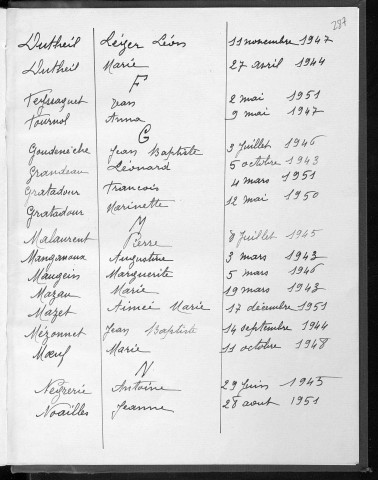 287
Dutheil Léger Léon 11 novembre 1947
Dutheil Marie 27 avril 1944
F
Feyssaguet Jean 2 mai 1951
Fournol Anna 9 mai 1947
G
Goudenèche Jean Baptiste 3 juillet 1946
Grandeau Léonard 5 octobre 1943
Gratadour Francois 4 mars 1951
Gratadour Marinette 12 mai 1950
M
Malaurent Pierre 8 juillet 1945
Manganoux Augustine 3 mars 1943
Maugein Marguerite 5 mars 1946
Mazau Marie 19 mars 1943
Mazet Aimée Marie 17 décembre 1951
Mézonnet Jean Baptiste 14 septembre 1944
Mœuf Marie 11 octobre 1948
N
Negrerie Antoine 29 juin 1945
Noailles Jeanne 28 aout 1951